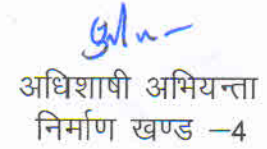 अधिशाषी अभियन्ता
निर्माण खण्ड –4